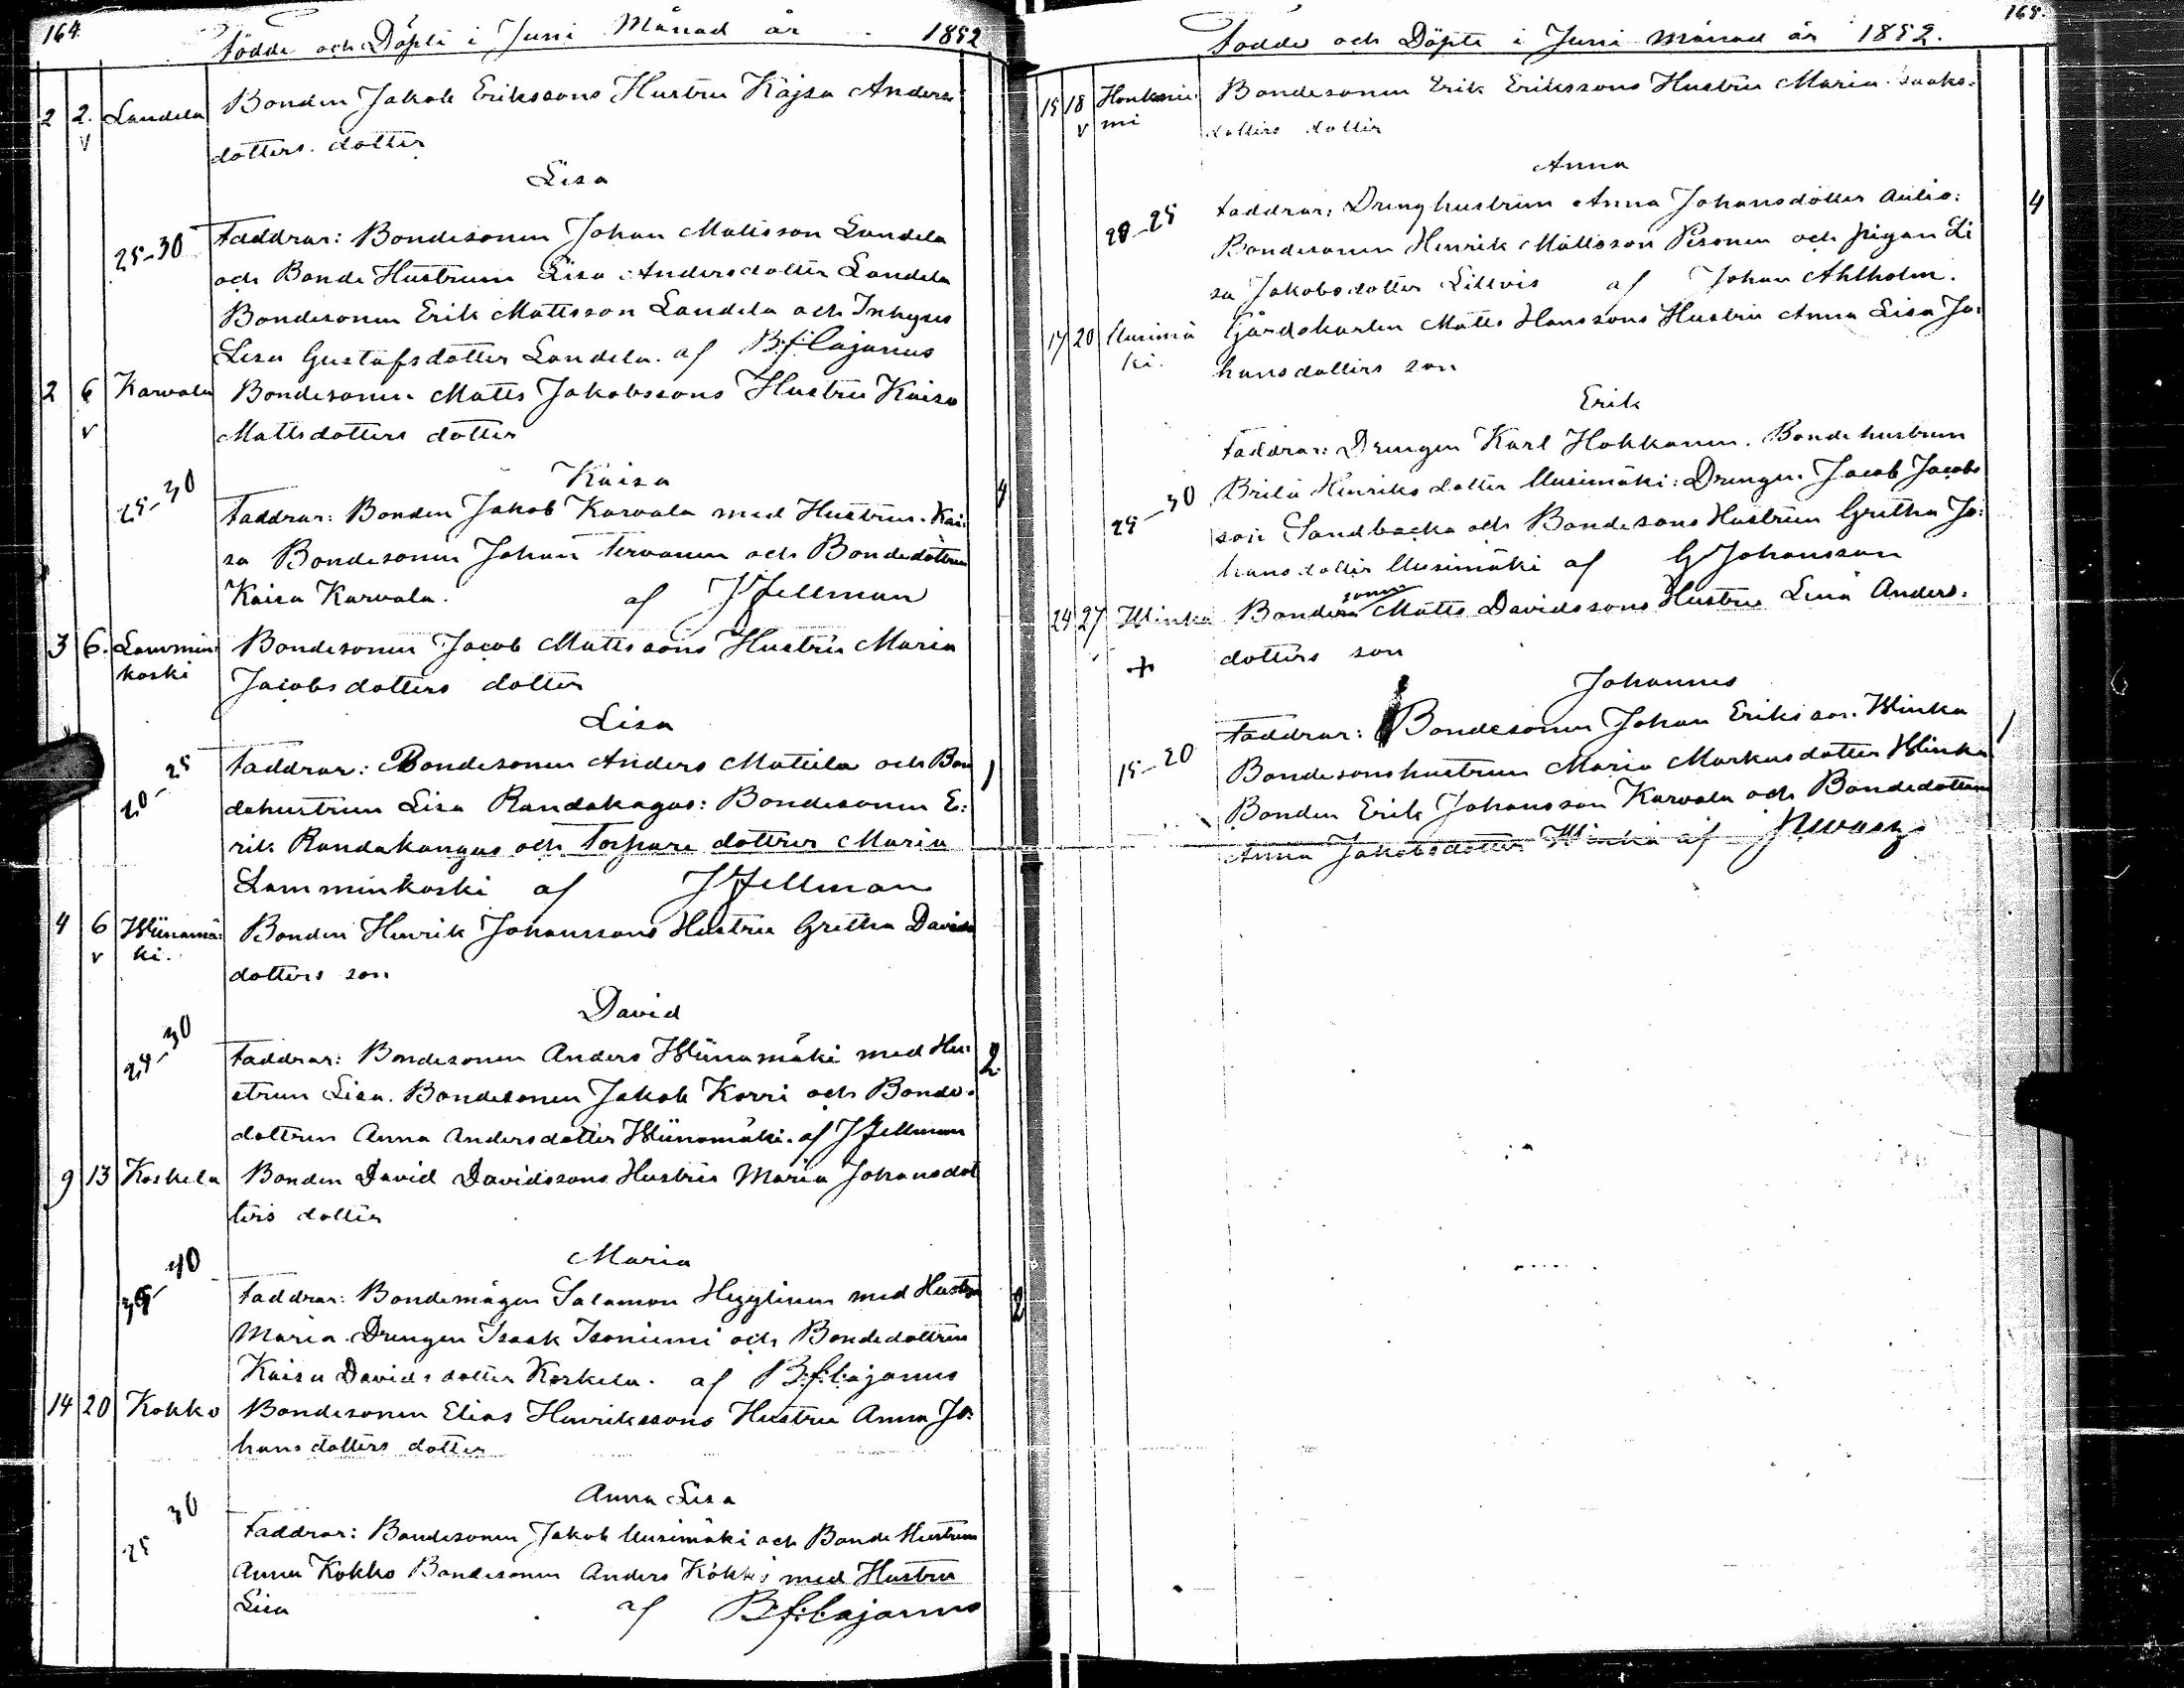 164.
Födde och Döpte i Juni Månad år 1852
2 2. Landela Bonden Jakob Erikssons Hustru Kajsa Anders
v
dotters dotter
Lisa
25-30 Faddrar: Bondesonen Johan Mattsson Landela
och Bonde Hustrum Lisa Andersdotter Landela
Bondesonen Erik Mattsson Landela och Inhyses
Lisa Gustafsdotter Landela. af B:f:Cajanus
2 6 Karvala Bondesonen Matts Jakobssons Hustru Kaisa
v Mattsdotters dotter
Kaisa
25-30 Faddrar: Bonden Jakob Karvala med Hustrun Kai: 4
sa Bondesonen Johan Tervonen och Bondedottren
Kaisa Karvala. af J Fellman
3 6. Lammin Bondesonen Jacob Mattssons Hustru Maria
koski Jacobsdotters dotter
Lisa
20-25 Faddrar: Bondesonen Anders Mattila och Bon 1
dehustrun Lisa Randakagas: Bondesonen E:
rik Randakangas och Torpare dottren Maria
Lamminkoski af J Fellman
4 6 Wiinamä: Bonden Henrik Johanssons Hustru Gretha Davids
v ki. dotters son
David
24-30 Faddrar: Bondesonen Anders Wiinamäki med Hu: 2
strun Lisa. Bondesonen Jakob Korri och Bonde:
dottren Anna Andersdotter Wiinamäki. af J Fellman
9 13 Koskela Bonden David Davidssons Hustru Maria Johansdot
ters dotter
Maria
35-40 Faddrar: Bondemågen Salamon Hyylinen med Hustru 2
Maria. Drengen Isaak Isoniemi och Bondedottren
Kaisa Davidsdotter Koskela. af B:f:Cajanus
14 20 Kokko Bondesonen Elias Henrikssons Hustru Anna Jo:
hansdotters dotter
Anna Lisa
25 30 Faddrar: Bondesonen Jakob Uusimäki och Bonde Hustrun
Anna Kokko Bondesonen Anders Kokko med Hustru
Lisa af B:f:Cajanus
165.
Födde och Döpte i Juni månad år 1852.
15 18 Honkanie Bondesonen Erik Erikssons Hustru Maria Isaks:
v mi dotters dotter
Anna
20-25 Faddrar: Drenghustrun Anna Johansdotter Aulio: 4
Bondesonen Henrik Mattsson Pesonen och pigan Li
sa Jakobsdotter Lillvis af Johan Ahlholm.
17 20 Uusimä Gårdskarlen Matts Hanssons Hustru Anna Lisa Jo:
ki. hansdotters son
Erik
Faddrar: Drengen Karl Hokkanen. Bondehustrun
25-30 Brita Henriksdotter Uusimäki: Drengen Jacob Jacobs
son Sandbacka och Bondesons Hustrun Gretha Jo:
hansdotter Uusimäki af G Johansson
sonen
24 27 Winka Bonden Matts Davidssons Hustru Lena Anders:
+ dotters son
Johannes
Faddrar: Bondesonen Johan Eriksson Winka 1
15-20 Bondesonshustrun Maria Markusdotter Winka
Bonden Erik Johansson Karvala och Bondedottren
Anna Jakobsdotter Winka af